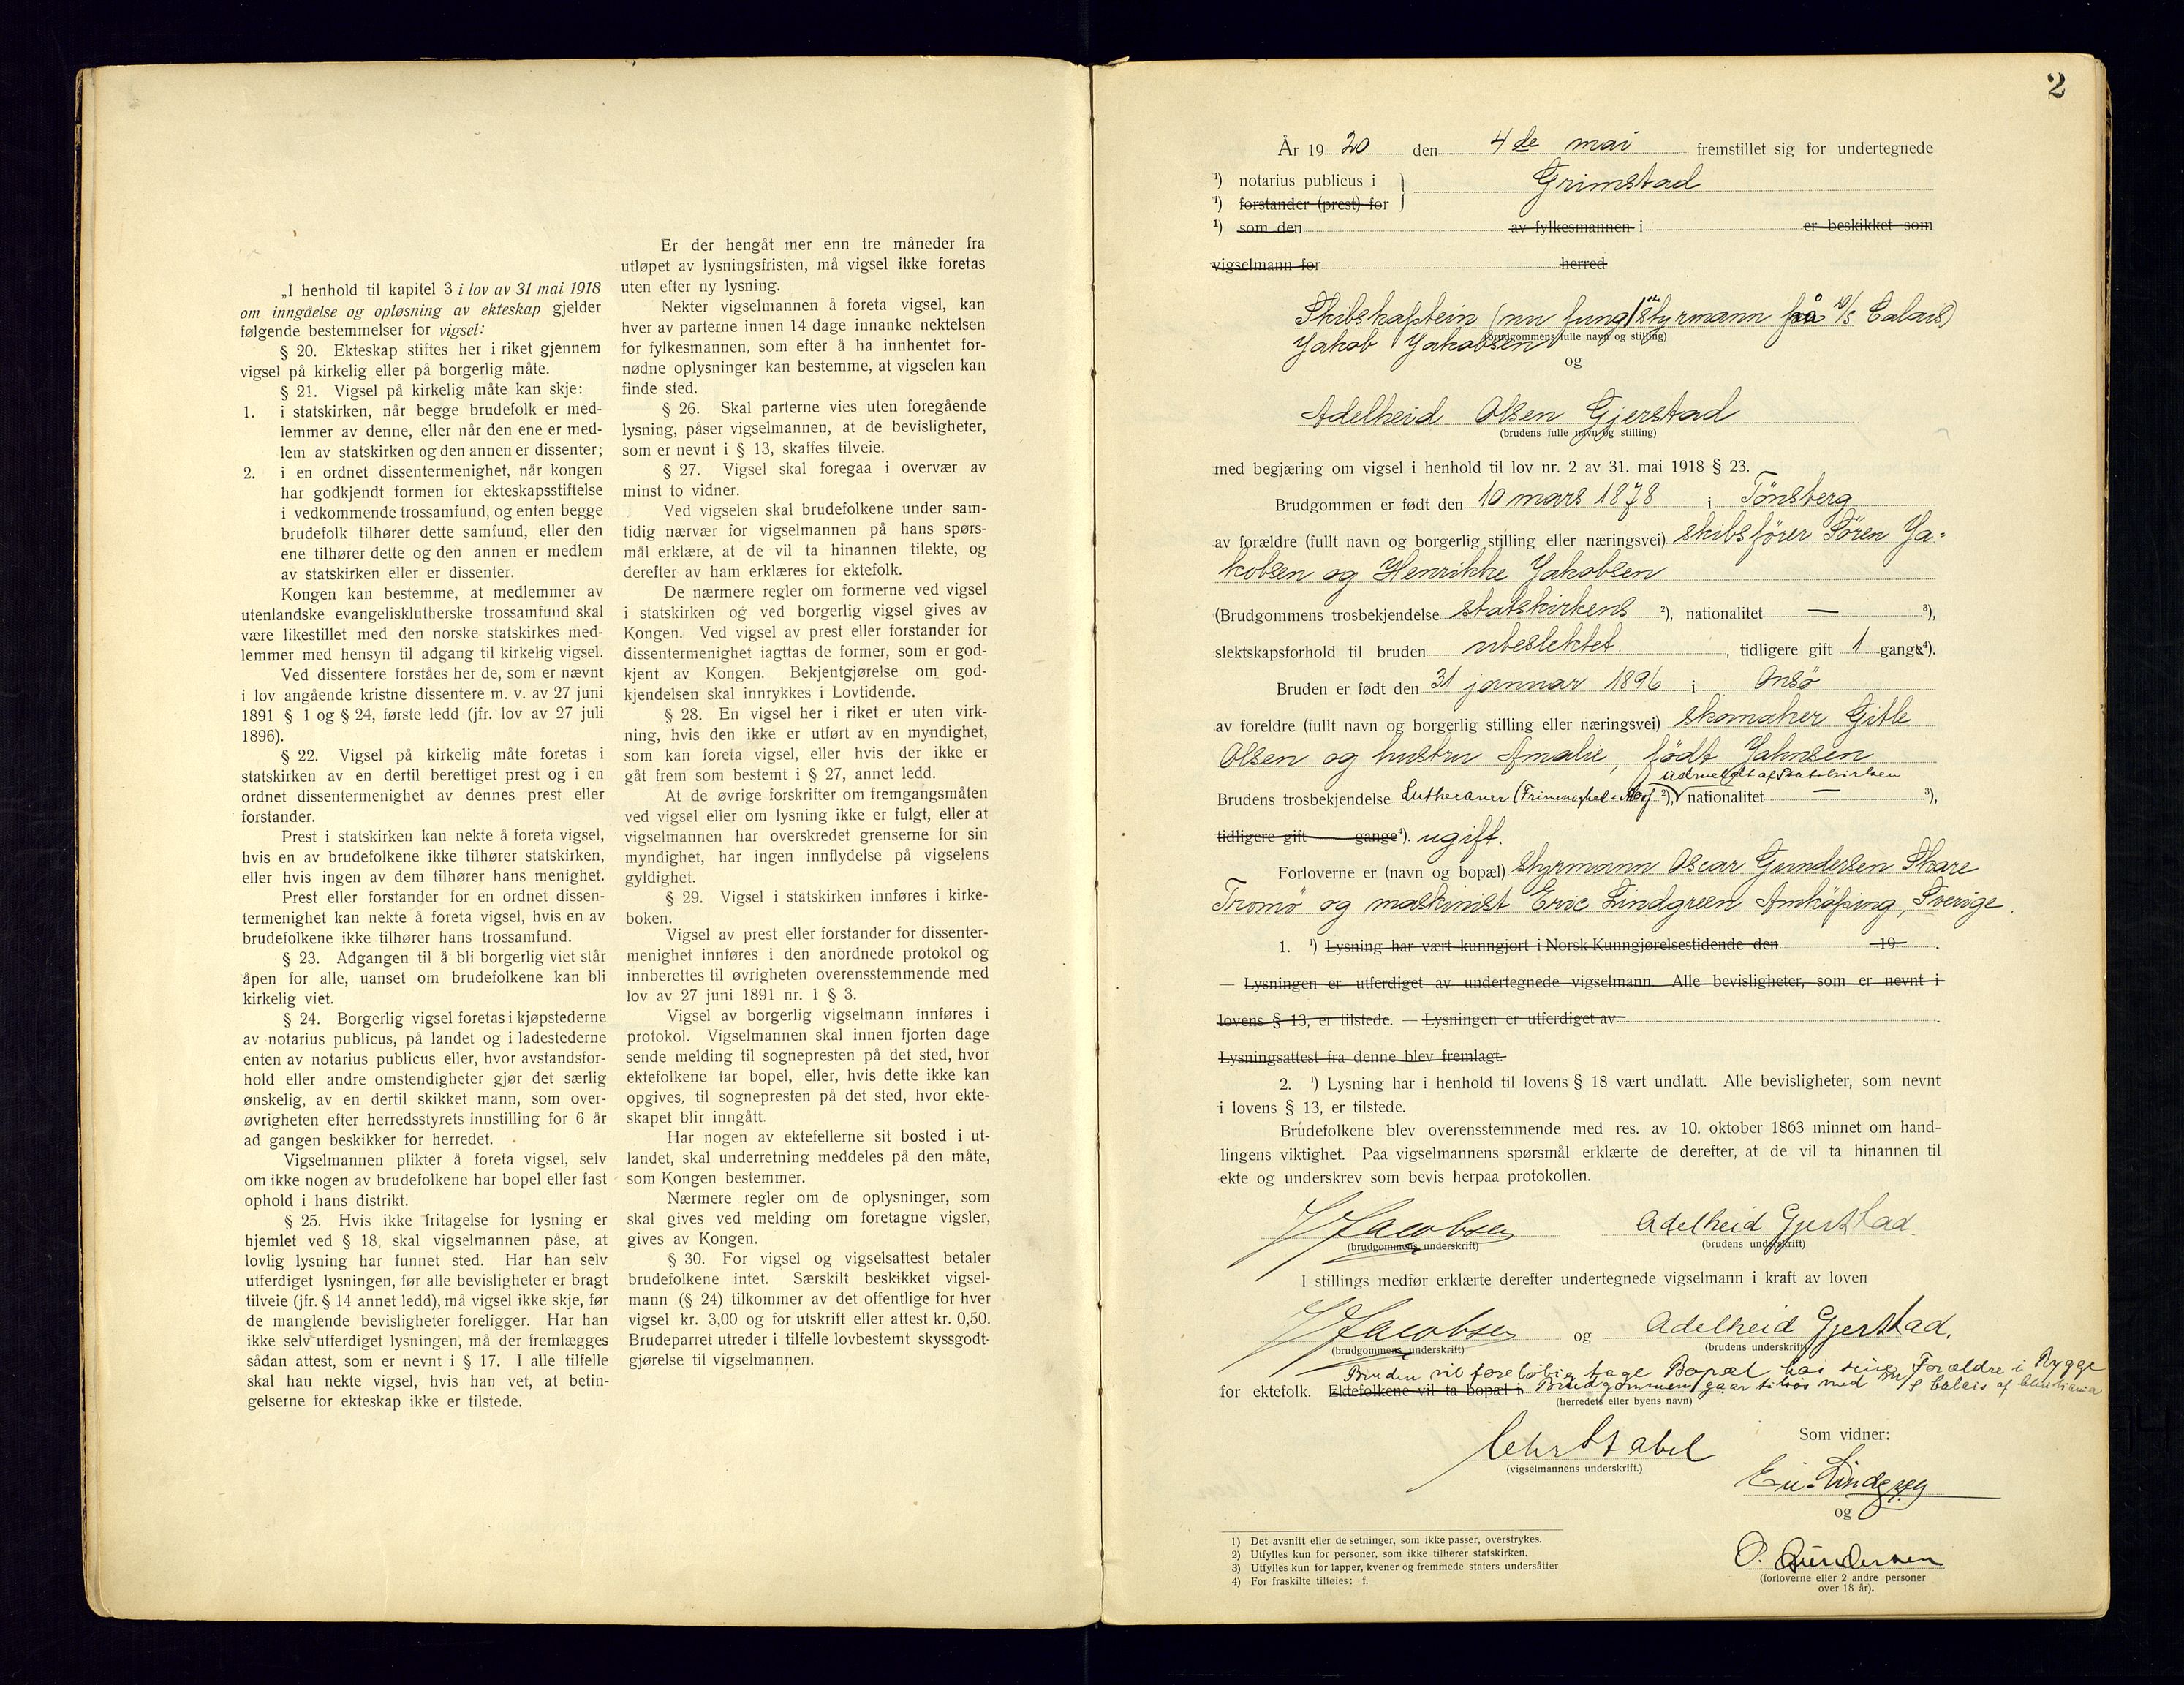 „I henhold til kapitel 3 i lov av 31 mai 1918
om inngåelse og opløsning av ekteskap gjelder
følgende bestemmelser for vigsel:
§ 20. Ekteskap stiftes her i riket gjennem
vigsel på kirkelig eller på borgerlig måte.
§ 21. Vigsel på kirkelig måte kan skje:
1. i statskirken, når begge brudefolk er med-
lemmer av denne, eller når den ene er med-
lem av statskirken og den annen er dissenter;
2. i en ordnet dissentermenighet, når kongen
har godkjendt formen for ekteskapsstiftelse
i vedkommende trossamfund, og enten begge
brudefolk tilhører dette samfund, eller den
ene tilhører dette og den annen er medlem
av statskirken eller er dissenter.
Kongen kan bestemme, at medlemmer av
utenlandske evangelisklutherske trossamfund skal
være likestillet med den norske statskirkes med-
lemmer med hensyn til adgang til kirkelig vigsel.
Ved dissentere forståes her de, som er nævnt
i lov angående kristne dissentere m. v. av 27 juni
1891 § 1 og § 24, første ledd (jfr. lov av 27 juli
1896).
§ 22. Vigsel på kirkelig måte foretas i
statskirken av en dertil berettiget prest og i en
ordnet dissentermenighet av dennes prest eller
forstander.
Prest i statskirken kan nekte å foreta vigsel,
hvis en av brudefolkene ikke tilhører statskirken,
eller hvis ingen av dem tilhører hans menighet.
Prest eller forstander for en ordnet dissen-
termenighet kan nekte å foreta vigsel, hvis en av
brudefolkene ikke tilhører hans trossamfund.
§ 23. Adgangen til å bli borgerlig viet står
åpen for alle, uanset om brudefolkene kan bli
kirkelig viet.
§ 24. Borgerlig vigsel foretas i kjøpstederne
av notarius publicus, på landet og i ladestederne
enten av notarius publicus eller, hvor avstandsfor-
hold eller andre omstendigheter gjør det særlig
ønskelig, av en dertil skikket mann, som over-
øvrigheten efter herredsstyrets innstilling for 6 år
ad gangen beskikker for herredet.
Vigselmannen plikter å foreta vigsel, selv
om ikke nogen av brudefolkene har bopel eller fast
ophold i hans distrikt.
§ 25. Hvis ikke fritagelse for lysning er
hjemlet ved § 18, skal vigselmannen påse, at
lovlig lysning har funnet sted. Har han selv
utferdiget lysningen, før alle bevisligheter er bragt
tilveie (jfr. § 14 annet ledd), må vigsel ikke skje, før
de manglende bevisligheter foreligger. Har han
ikke selv utferdiget lysningen, må der fremlægges
sådan attest, som er nevnt i § 17. I alle tilfelle
skal han nekte vigsel, hvis han vet, at betin-
gelserne for ekteskap ikke er tilstede.
Er der hengåt mer enn tre måneder fra
utløpet av lysningsfristen, må vigsel ikke foretas
uten efter ny lysning.
Nekter vigselmannen å foreta vigsel, kan
hver av parterne innen 14 dage innanke nektelsen
for fylkesmannen, som efter å ha innhentet for-
nødne oplysninger kan bestemme, at vigselen kan
finde sted.
§ 26. Skal parterne vies uten foregående
lysning, påser vigselmannen, at de bevisligheter,
som er nevnt i § 13, skaffes tilveie.
§ 27. Vigsel skal foregaa i overvær av
minst to vidner.
Ved vigselen skal brudefolkene under sam-
tidig nærvær for vigselmannen på hans spørs-
mål erklære, at de vil ta hinannen tilekte, og
derefter av ham erklæres for ektefolk.
De nærmere regler om formerne ved vigsel
i statskirken og ved borgerlig vigsel gives av
Kongen. Ved vigsel av prest eller forstander for
dissentermenighet iagttas de former, som er god-
kjent av Kongen. Bekjentgjørelse om god-
kjendelsen skal innrykkes i Lovtidende.
§ 28. En vigsel her i riket er uten virk-
ning, hvis den ikke er utført av en myndighet,
som kan foreta vigsel, eller hvis der ikke er
gåt frem som bestemt i § 27, annet ledd.
At de øvrige forskrifter om fremgangsmåten
ved vigsel eller om lysning ikke er fulgt, eller at
vigselmannen har overskredet grenserne for sin
myndighet, har ingen innflydelse på vigselens
gyldighet.
§ 29. Vigsel i statskirken innføres i kirke-
boken.
Vigsel av prest eller forstander for dissenter-
menighet innføres i den anordnede protokol og
innberettes til øvrigheten overensstemmende med
lov av 27 juni 1891 nr. 1 § 3.
Vigsel av borgerlig vigselmann innføres i
protokol. Vigselmannen skal innen fjorten dage
sende melding til sognepresten på det sted, hvor
ektefolkene tar bopel, eller, hvis dette ikke kan
opgives, til sognepresten på det sted, hvor ekte-
skapet blir inngått.
Har nogen av ektefellerne sit bosted i ut-
landet, skal underretning meddeles på den måte,
som Kongen bestemmer.
Nærmere regler om de oplysninger, som
skal gives ved melding om foretagne vigsler,
gives av Kongen.
§ 30. For vigsel og vigselsattest betaler
brudefolkene intet. Særskilt beskikket vigsel-
mann (§ 24) tilkommer av det offentlige for hver
vigsel kr. 3,00 og for utskrift eller attest kr. 0,50.
Brudeparret utreder i tilfelle lovbestemt skyssgodt-
gjørelse til vigselmannen.
2
År 1920 den 4de mai fremstillet sig for undertegnede
1) notarius publicus i Grimstad
1) forstander (prest) for
1) som den av fylkesmannen i er beskikket som
vigselmann for herred
Skibskaptein (nu fung 1ste styrmann på D/S Calais)
Jakob Jakobsen
(brudgommens fulle navn og stilling)
og
Adelheid Olsen Gjerstad
(brudens fulle navn og stilling)
med begjæring om vigsel i henhold til lov nr. 2 av 31. mai 1918 § 23.
Brudgommen er født den 10 mars 1878 i Tönsberg
av forældre (fullt navn og borgerlig stilling eller næringsvei) skibsfører Sören Ja-
kobsen og Henrikke Jakobsen
(Brudgommens trosbekjendelse statskirkens 2), nationalitet — 3),
slektskapsforhold til bruden ubeslektet. , tidligere gift 1 gange4).
Bruden er født den 31 januar 1896 i Onsö
av foreldre (fullt navn og borgerlig stilling eller næringsvei) skomaker Gitle
Olsen og hustru Amalie, født Jahnsen
udmeldt af Statskirken
Brudens trosbekjendelse Lutheraner (Frimenighed i Moss 2), nationalitet — 3),
tidligere gift gange4). ugift.
Forloverne er (navn og bopæl) styrmann Oscar Gundersen Skare
Tromö og maskinist Eric Lindgreen Amköping, Sverige.
1. 1) Lysning har vært kunngjort i Norsk Kunngjørelsestidende den 19 .
— Lysningen er utferdiget av undertegnede vigselmann. Alle bevisligheter, som er nevnt i
lovens § 13, er tilstede. — Lysningen er utferdiget av .
Lysningsattest fra denne blev fremlagt.
2. 1) Lysning har i henhold til lovens § 18 vært undlatt. Alle bevisligheter, som nevnt
i lovens § 13, er tilstede.
Brudefolkene blev overensstemmende med res. av 10. oktober 1863 minnet om hand-
lingens viktighet. Paa vigselmannens spørsmål erklærte de derefter, at de vil ta hinannen til
ekte og underskrev som bevis herpaa protokollen.
J Jacobsen Adelheid Gjerstad.
(brudgommens underskrift) (brudens underskrift)
I stillings medfør erklærte derefter undertegnede vigselmann i kraft av loven
J Jacobsen og Adelheid Gjerstad.
(brudgommens underskrift) (brudens underskrift)
Bruden vil foreløbig tage Bopæl hos sine Forældre i Rygge
for ektefolk. Ektefolkene vil ta bopæl i Brudgommen gaar tilsös med D/S Calais af Christiania
(herredets eller byens navn)
Chr Stabel
(vigselmannens underskrift.)
Som vidner:
Eric Lindgreen
og
O. Gundersen
(forloverne eller 2 andre personer
over 18 år).
1) Det avsnitt eller de setninger, som ikke passer, overstrykes.
2) Utfylles kun for personer, som ikke tilhører statskirken.
3) Utfylles kun for lapper, kvener og fremmede staters undersåtter
4) For fraskilte tilføies: f.